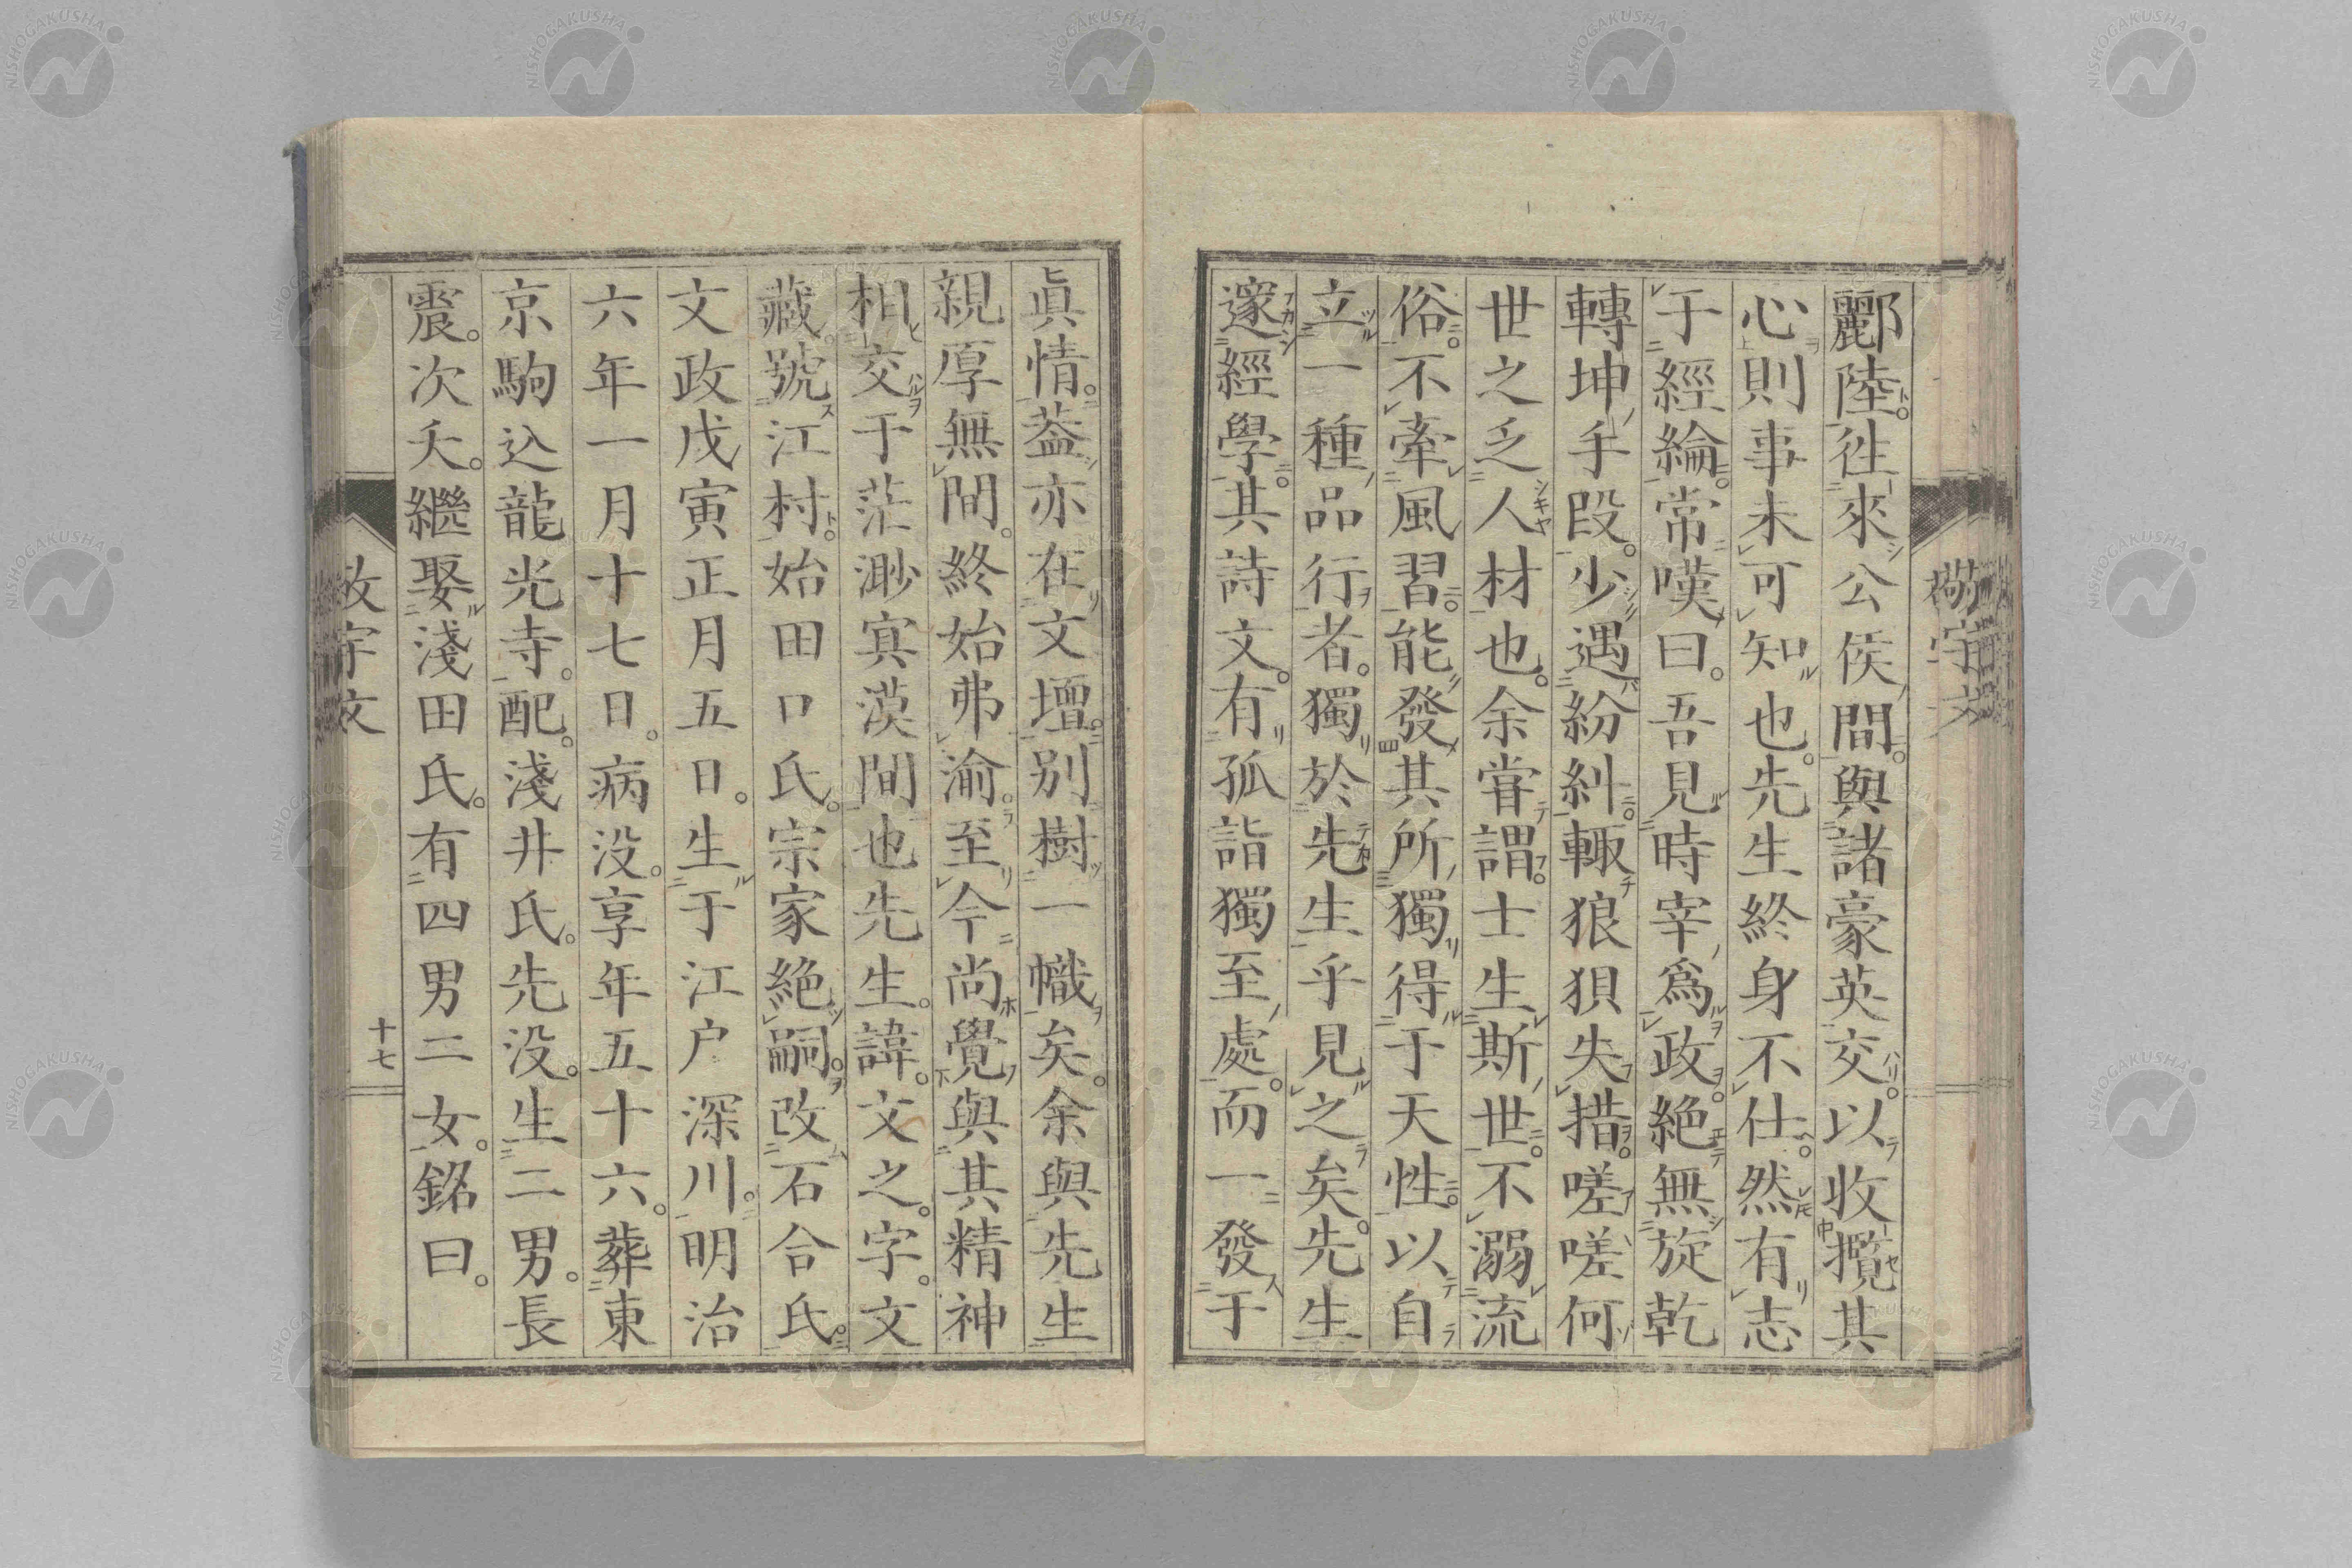 酈陸。徃來公侯間。與諸豪英交。以收攬其
心則事未可知也。先生終身不仕。然有志
于經綸。常嘆曰。吾見時宰爲政。絶無旋乾
轉坤手段。少遇紛糾。輙狼狽失措。嗟嗟何
世之乏人材也。余甞謂。士生斯世。不溺流
俗。不牽風習。能發其所獨得于天性。以自
立一種品行者。獨於先生乎見之矣。先生
邃經學。其詩文。有孤詣獨至處。而一發于
眞情。葢亦在文壇。別樹一幟矣。余與先生
親厚無間。終始弗渝。至今尚覺與其精神
相交于茫渺寞漠間也先生。諱。文之。字。文
藏。號江村。始田口氏。宗家絶嗣。改石合氏。
文政戊寅正月五日。生于江戸深川。明治
六年一月十七日。病没。享年五十六。葬東
京駒込龍光寺。配。淺井氏。先没。生二男。長
震。次夭。繼娶淺田氏。有四男二女。銘曰。
十七
NISHOGAKUSHA